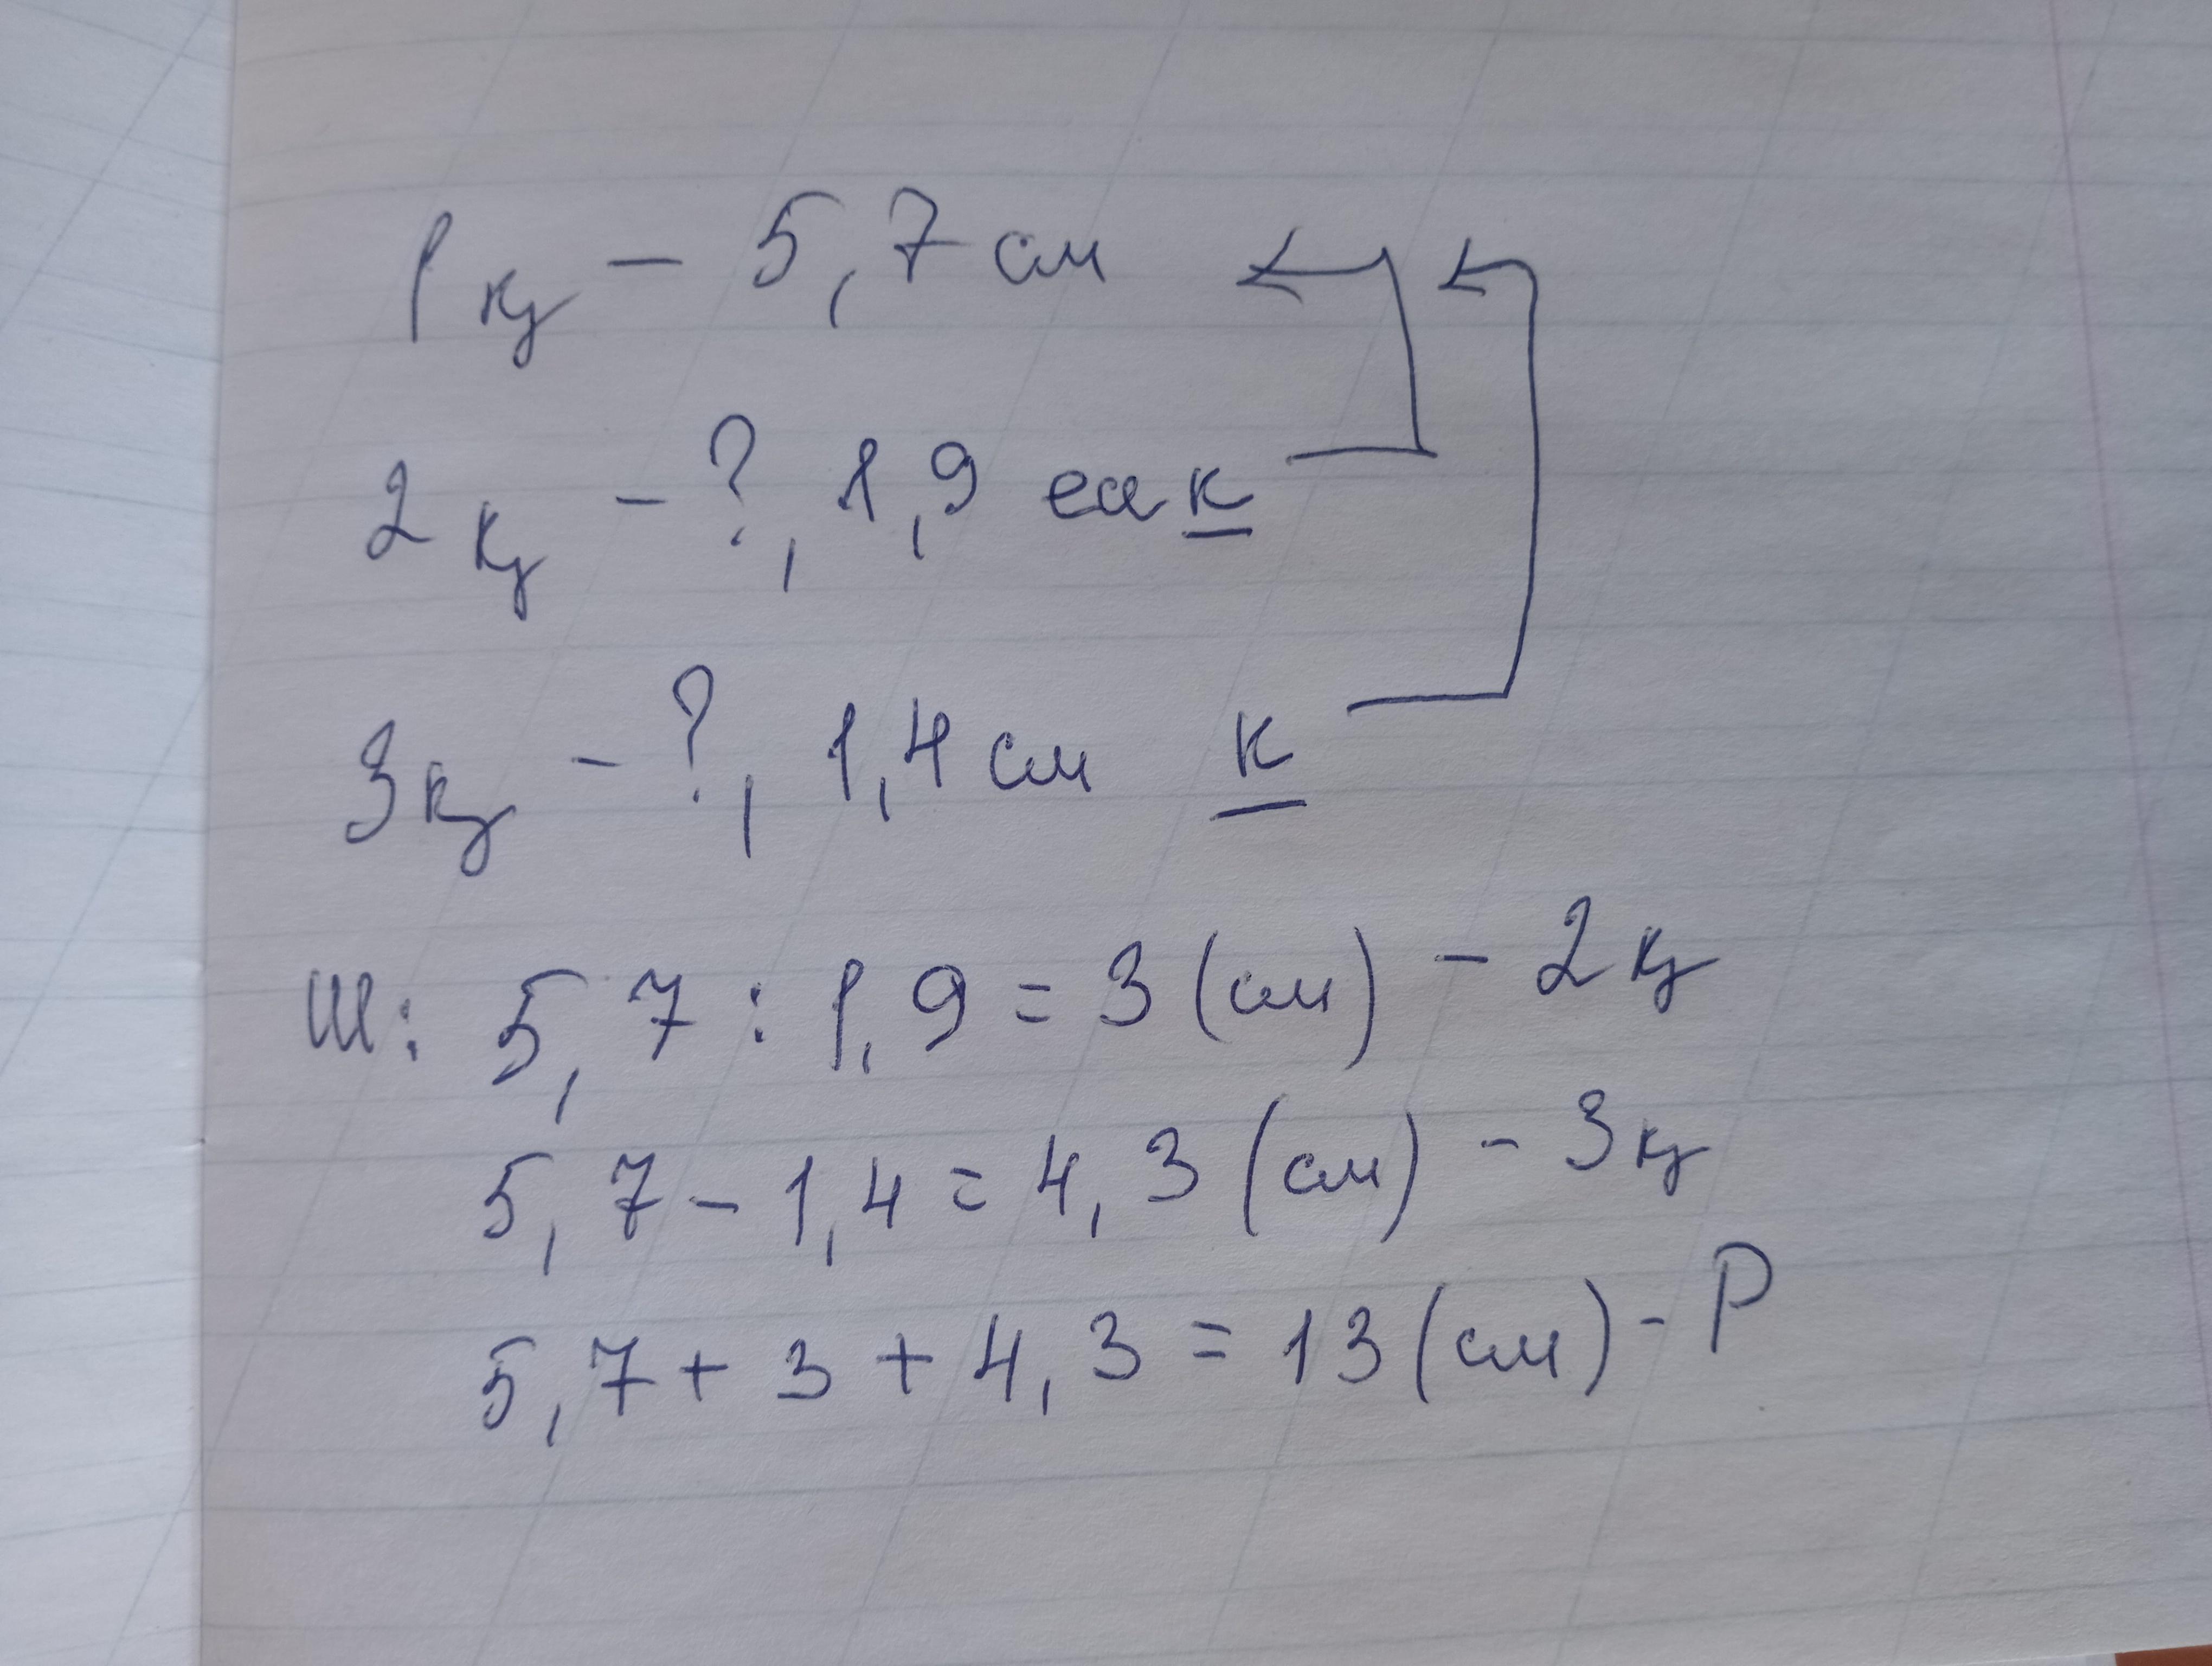 1 қ – 5,7 см
2 қ – ?, 1,9 есе к
3 қ – ?, 1,4 см к
Ш: 5,7 : 1,9 = 3 (см) – 2 қ
5,7 – 1,4 = 4,3 (см) – 3 қ
5,7 + 3 + 4,3 = 13 (см) – P